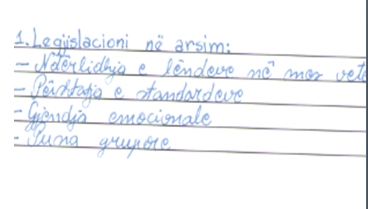 1. Legjislacioni në arsim:
- Ndërlidhja e lëndeve në mes vete
- Përshtatja e standardeve
- Gjendja emocionale
- Puna grupore